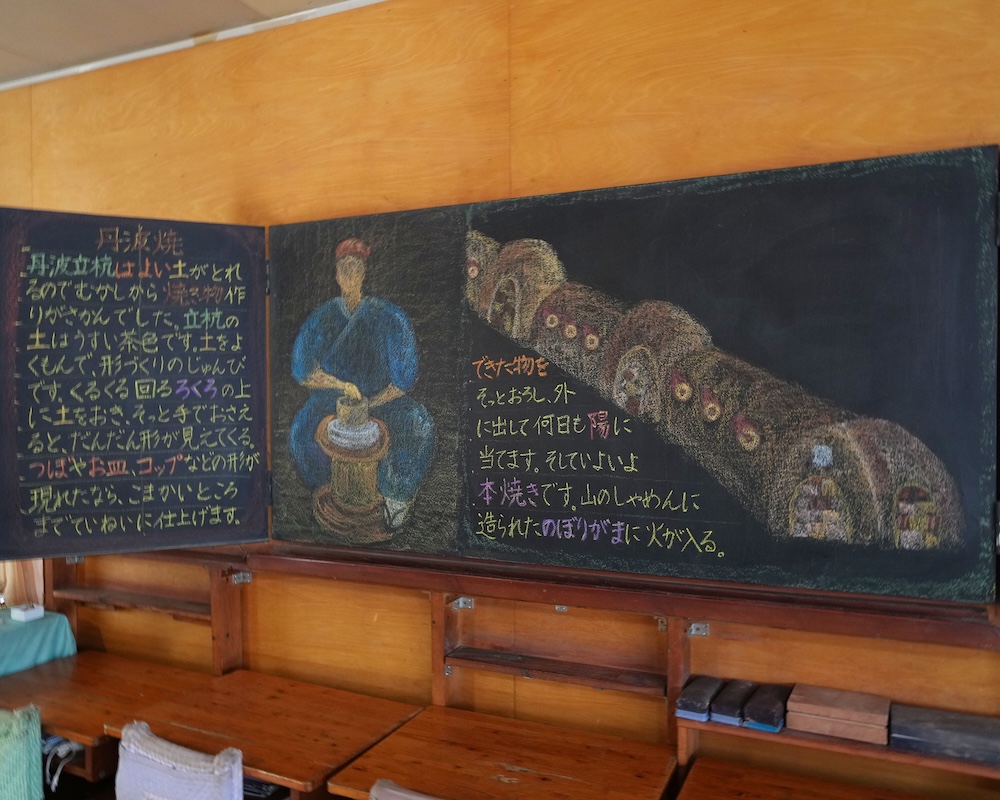 丹波焼
丹波立杭はよい土がとれ
るのでむかしから焼き物作
りがさかんでした。立杭の
土はうすい茶色です。土をよ
くもんで、形づくりのじゅんび
です。くるくる回るろくろの上
に土をおき、そっと手でおさえ
ると、だんだん形が見えてくる。
つぼやお皿、コップなどの形が
現れたなら、こまかいところ
までていねいに仕上げます。
できた物を
そっとおろし、外
に出して何日も陽に
当てます。そしていよいよ
本焼きです。山のしゃめんに
造られたのぼりがまに火が入る。